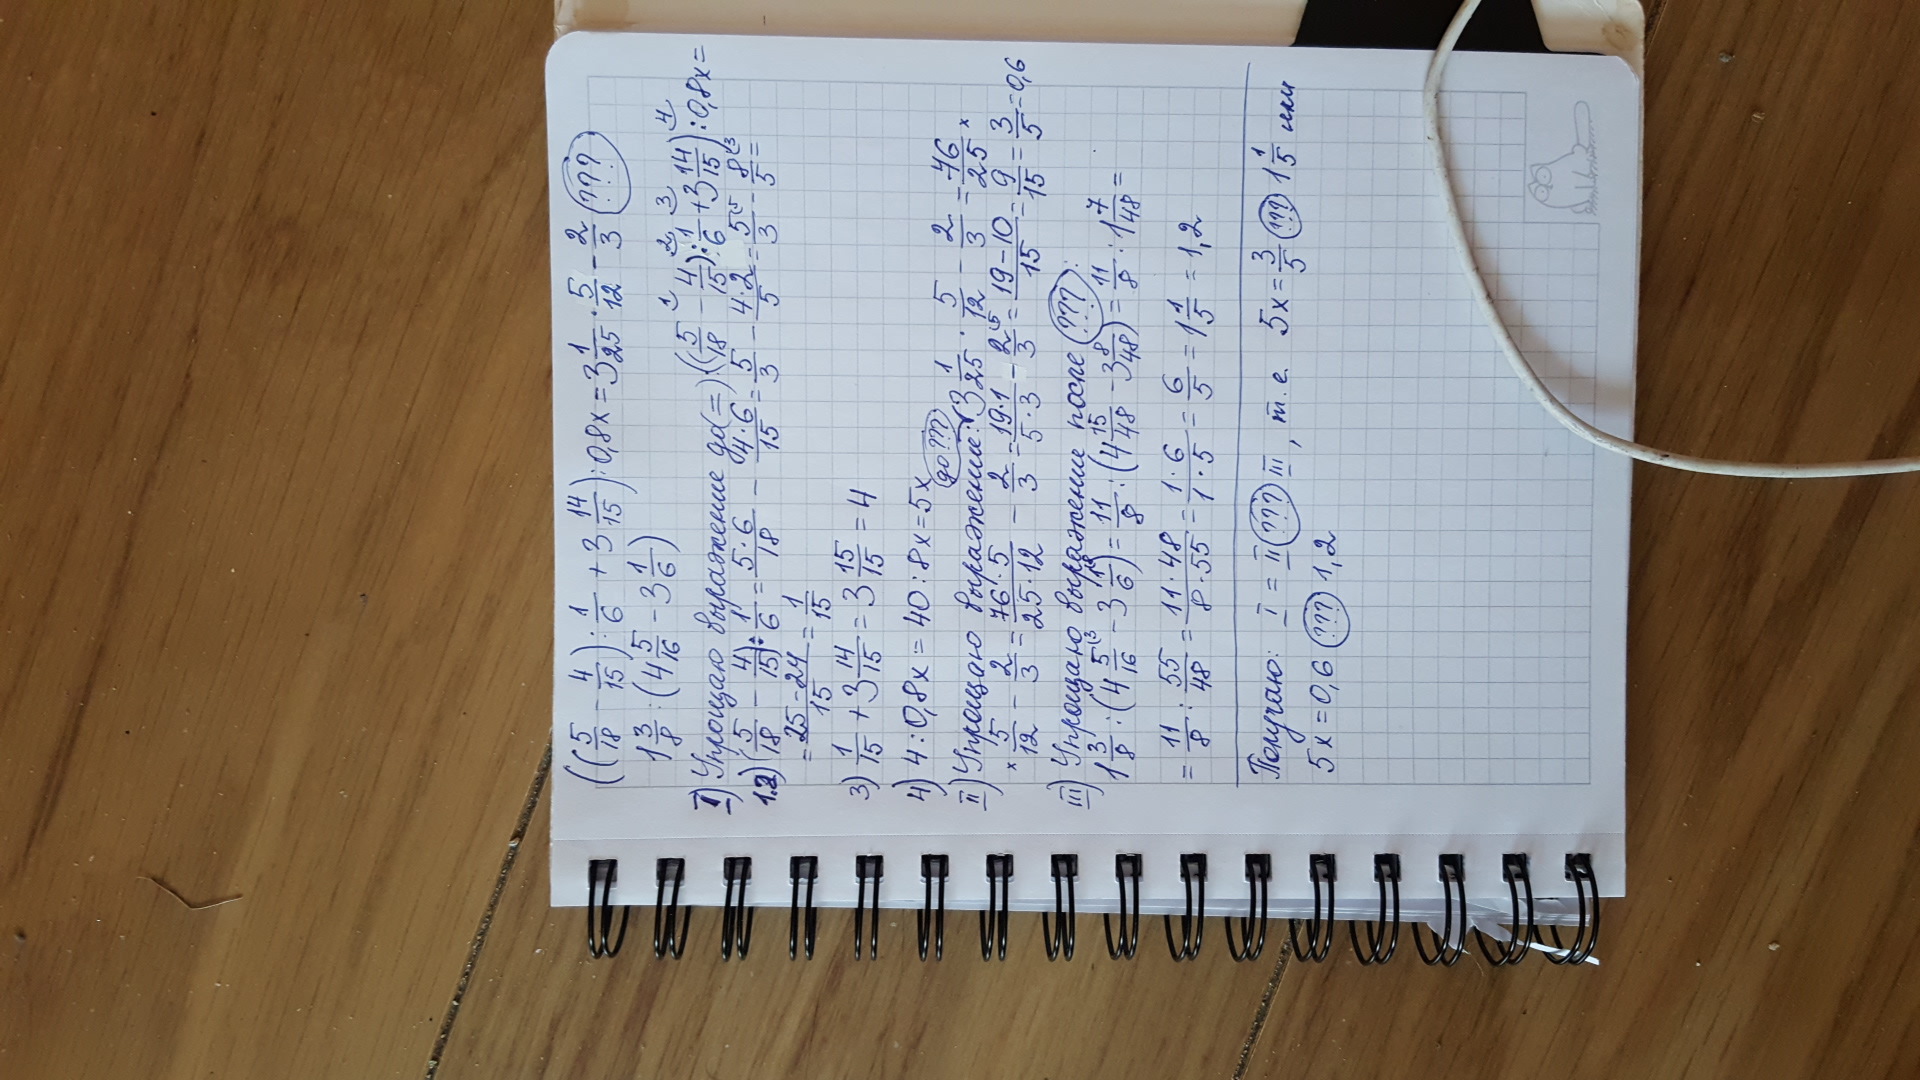 ((5/18 - 4/15) : 1/6 + 3 14/15) : 0,8x = 3 1/25 · 5/12 - 2/3 (???)
1 3/8 : (4 5/16 - 3 1/6)
I) Упрощаю выражение до(=): ((5/18 - 4/15) : 1/6 + 3 14/15) : 0,8x =
1.2) (5/18 - 4/15) : 1/6 = 5·6/18 - 4·6/15 = 5/3 - 4·2/5 = 5/3 - 8/5 =
= 25-24/15 = 1/15
3) 1/15 + 3 14/15 = 3 15/15 = 4
4) 4 : 0,8x = 40 : 8x = 5x
II) Упрощаю выражение (до ???): 3 1/25 · 5/12 - 2/3 = 76/25 ×
× 5/12 - 2/3 = 76·5/25·12 - 2/3 = 19·1/5·3 - 2/3 = 19-10/15 = 9/15 = 3/5 = 0,6
III) Упрощаю выражение после (???):
1 3/8 : (4 5/16 - 3 1/6) = 11/8 : (4 15/48 - 3 8/48) = 11/8 : 1 7/48 =
= 11/8 : 55/48 = 11·48/8·55 = 1·6/1·5 = 6/5 = 1 1/5 = 1,2
Получаю: I = II (???) III, т.е. 5x = 3/5 (???) 1 1/5 или
5x = 0,6 (???) 1,2